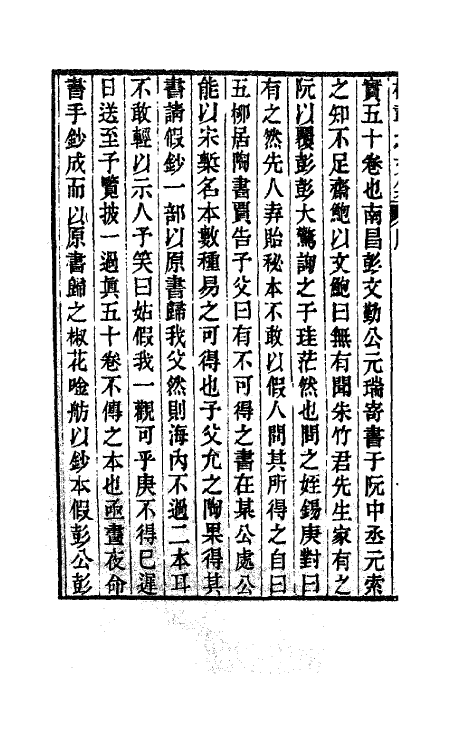 實五十卷也南昌彭文勤公元瑞寄書于阮中丞元索
之知不足齋鮑以文鮑曰無有聞朱竹君先生家有之
阮以覆彭彭大驚詢之子珪茫然也問之姪錫庚對曰
有之然先人弆貽秘本不敢以假人問其所得之自曰
五柳居陶書賈告予父曰有不可得之書在某公處公
能以宋槧名本數種易之可得也予父允之陶果得其
書請假鈔一部以原書歸我父然則海內不過二本耳
不敢輕以示人予笑曰姑假我一觀可乎庚不得已遲
日送至予覽披一過眞五十卷不傳之本也亟晝夜命
書手鈔成而以原書歸之椒花唫舫以鈔本假彭公彭